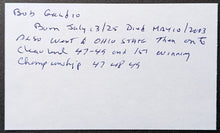 Bob Gaudio
Born July 23/25 Died MAY 10/2003
ALSO WENT @ OHIO STATE Then on to
Cleveland 47-49 and 1st winning
Championship 47 48 49